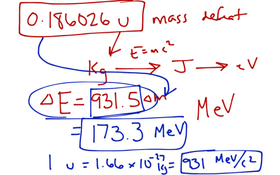 0.186026 u mass defect
E=mc²
Kg → J → eV
ΔE = 931.5 Δm MeV
= 173.3 MeV
1 u = 1.66 × 10⁻²⁷ kg = 931 MeV/c²